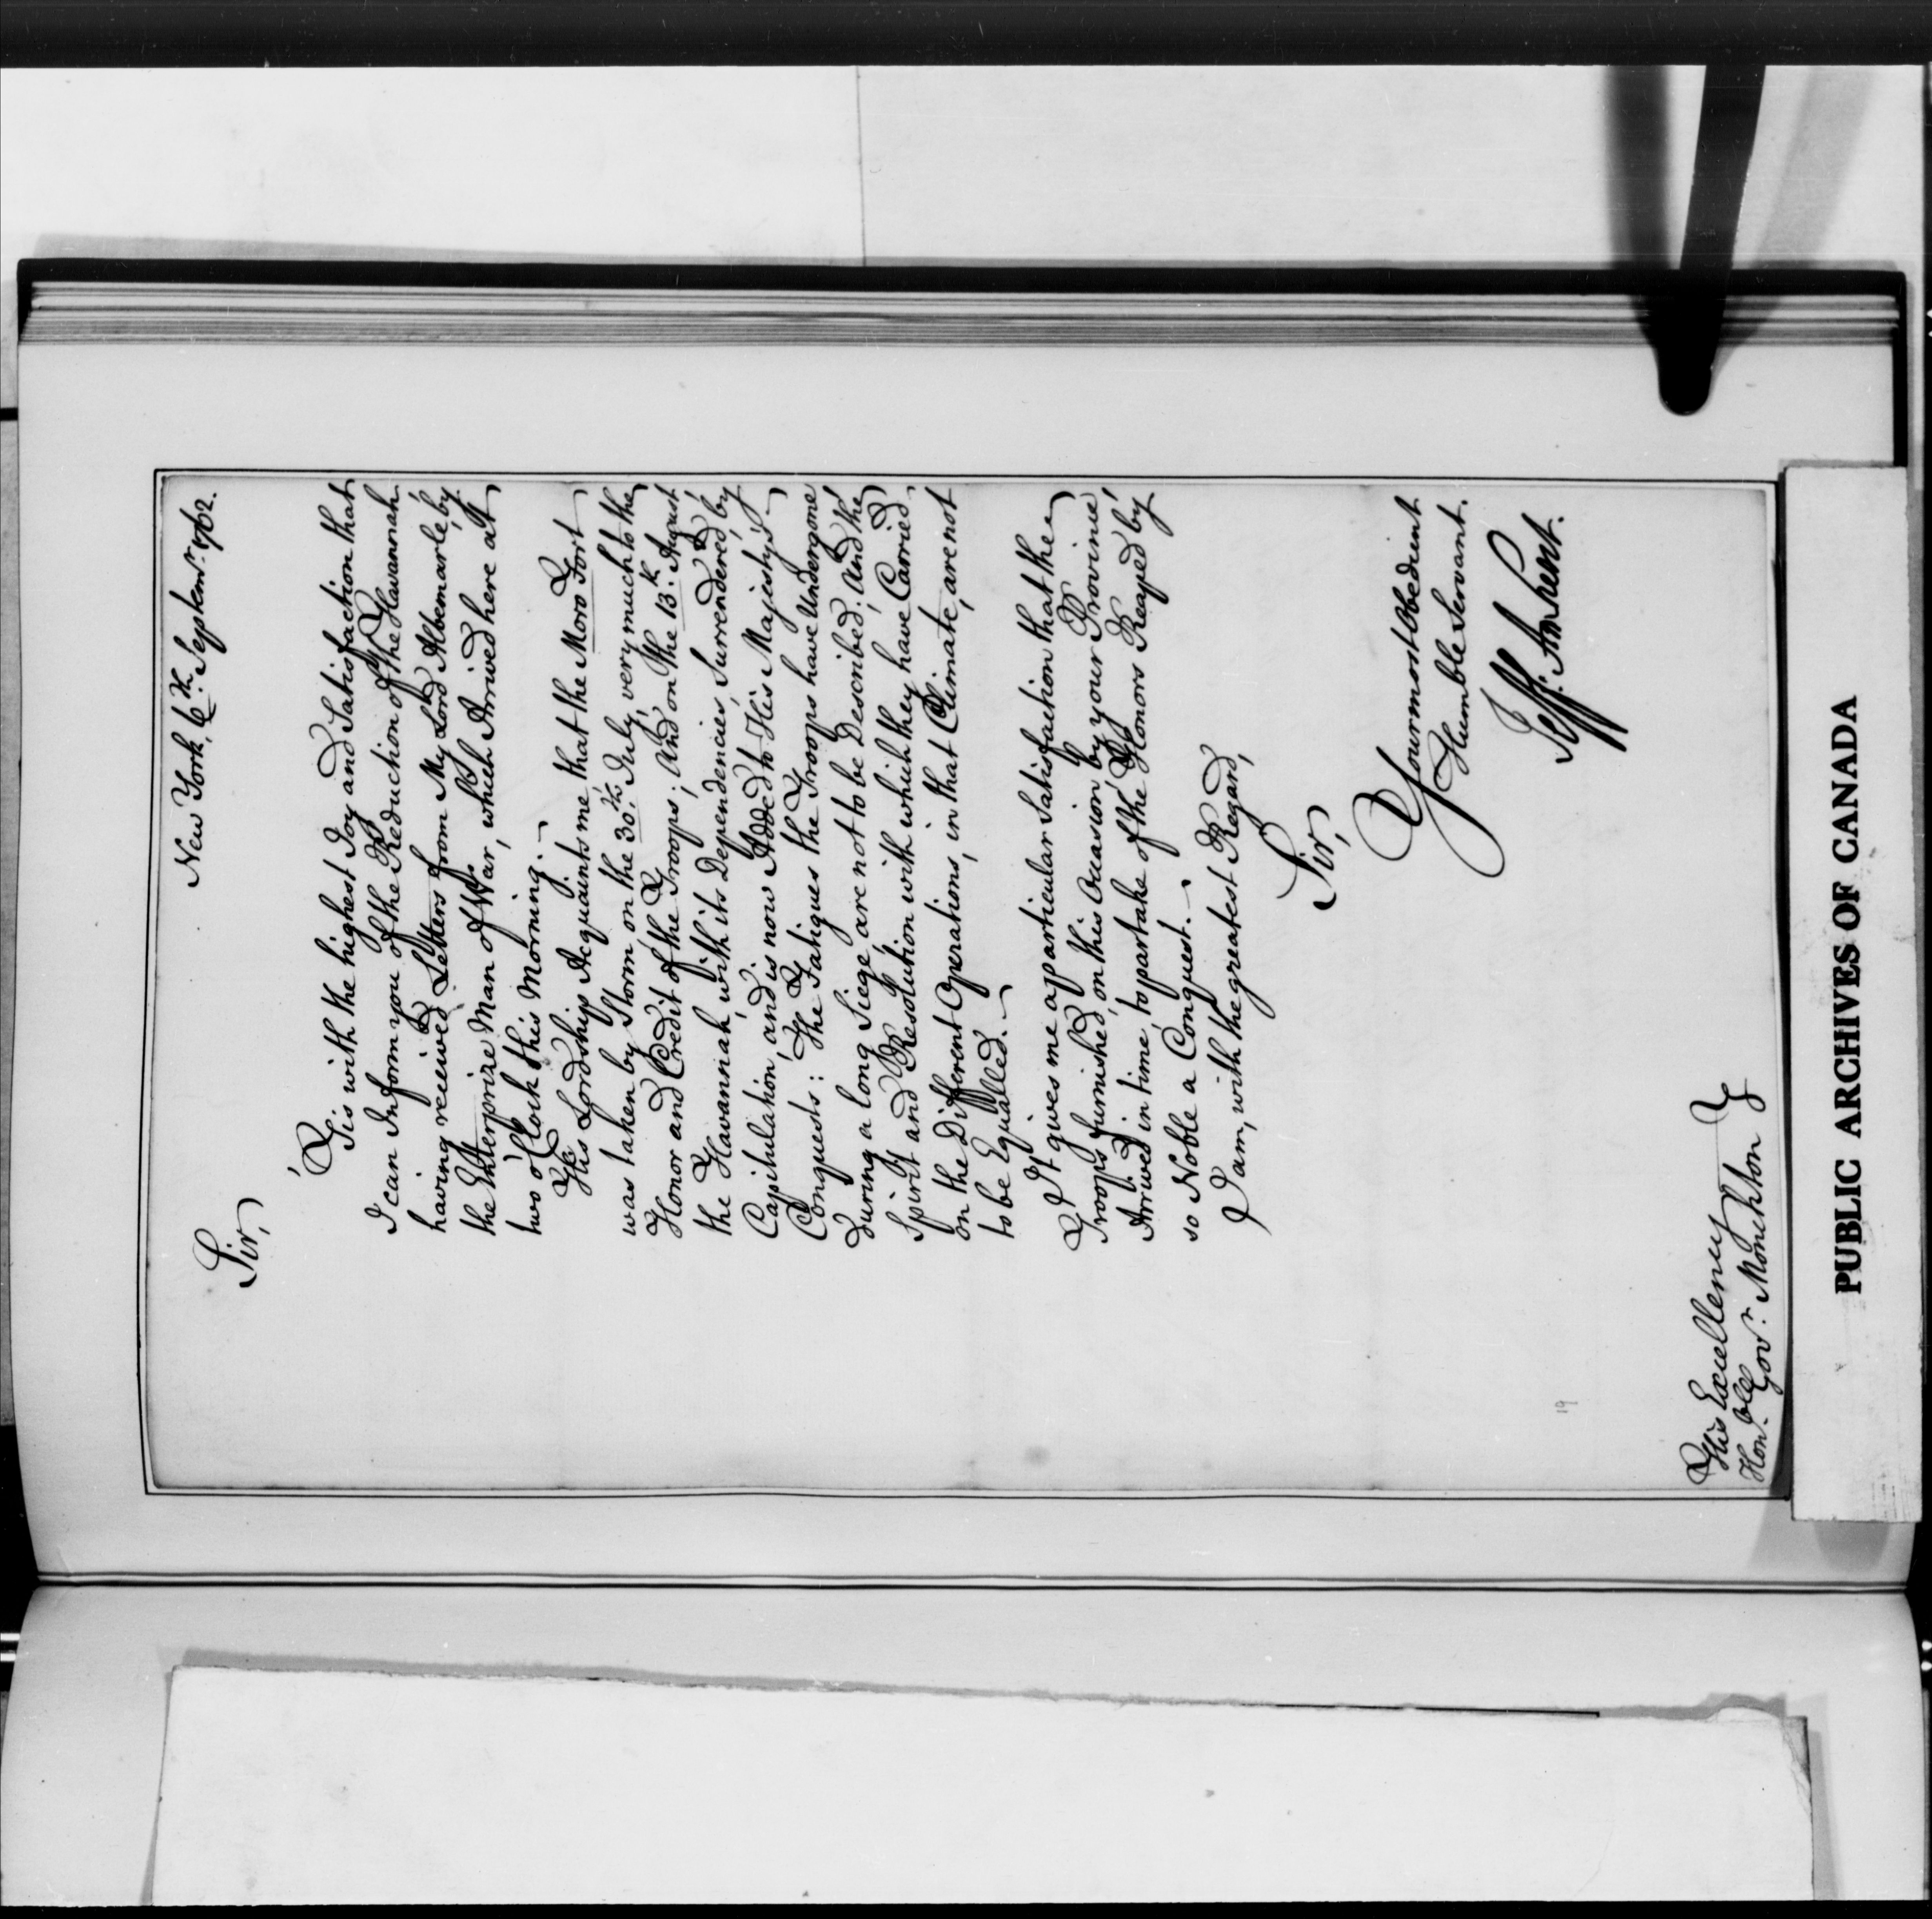 New York, 6th. Septemr. 1762.
Sir,
'Tis with the highest Joy and Satisfaction that
I can Inform you of the Reduction of the Havannah
having received Letters from My Lord Albemarle, by
the Enterprize Man of War, which Arrived here at
two o'Clock this Morning. —
His Lordship Acquaints me that the Moro Fort
was taken by Storm on the 30th. July, very much to the
Honor and Credit of the Troops; And on the 13th. August
the Havannah, with its Dependencies, Surrendered by
Capitulation, and is now Added to His Majesty's
Conquests: The Fatigues the Troops have Undergone
During a long Siege, are not to be Described; And the
Spirit and Resolution with which they have Carried
on the Different Operations, in that Climate, are not
to be Equalled. —
It gives me a particular Satisfaction that the
Troops furnished, on this Occasion, by your Province
Arrived in time, to partake of the Honors Reaped by
so Noble a Conquest. —
I am, with the greatest Regard,
Sir,
Your most Obedient
Humble Servant.
Jeff: Amherst.
His Excellency
Honble. Govr. Monckton
19
PUBLIC ARCHIVES OF CANADA